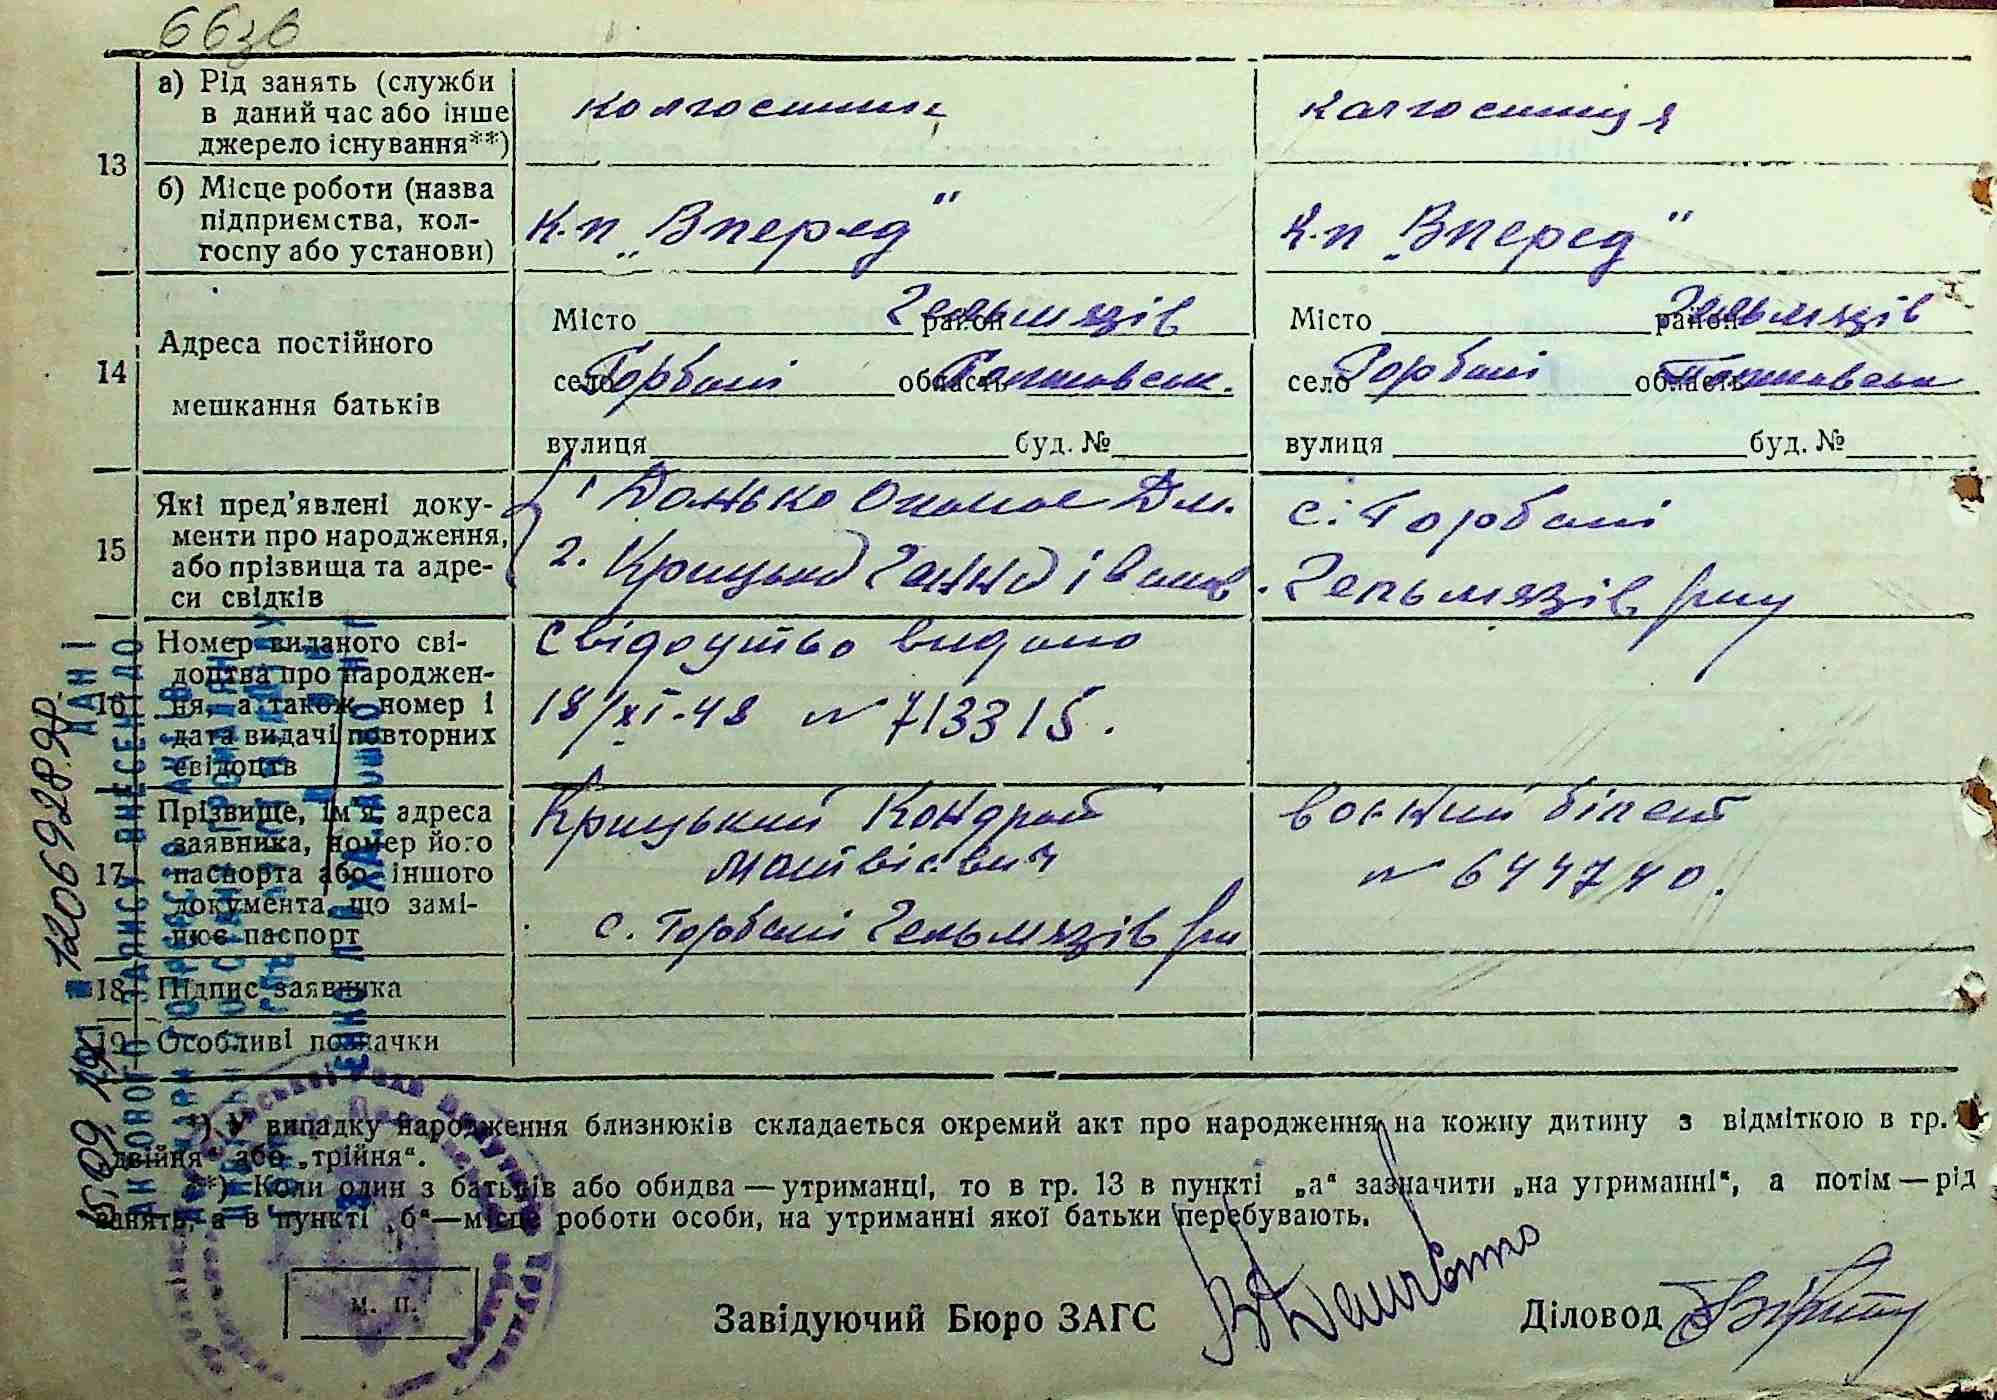 а) Рід занять (служби
в даний час або інше
джерело існування**)
колгоспник
колгоспниця
13
б) Місце роботи (назва
підприємства, кол-
госпу або установи)
к.п „Вперед“
к.п „Вперед“
14
Адреса постійного
мешкання батьків
Місто район Гельмязів
село Горбані область Полтавськ.
вулиця буд. №
Місто район Гельмязів
село Горбані область Полтавськ
вулиця буд. №
15
Які пред'явлені доку-
менти про народження,
або прізвища та адре-
си свідків
1 Данько Дм.
2. Крицька Ганна Іванов.
с. Горбані
Гельмязів р-ну
16
Номер виданого сві-
доцтва про народжен-
ня, а також номер і
дата видачі повторних
свідоцтв
Свідоцтво видано
18/XI-48 № 713315.
17
Прізвище, ім'я, адреса
заявника, номер його
паспорта або іншого
документа, що замі-
нює паспорт
Крицький Кондрат
Матвієвич
с. Горбані Гельмязів р-н
воєнний білет
№ 644740.
18 Підпис заявника
19 Особливі позначки
*) У випадку народження близнюків складається окремий акт про народження на кожну дитину з відміткою в гр.
„двійня“ або „трійня“.
**) Коли один з батьків або обидва — утриманці, то в гр. 13 в пункті „а“ зазначити „на утриманні“, а потім — рід
занять, а в пункті „б“ — місце роботи особи, на утриманні якої батьки перебувають.
м. п.
Завідуючий Бюро ЗАГС
Діловод
ДАНІ
АКТОВОГО ЗАПИСУ ВНЕСЕНІ ДО